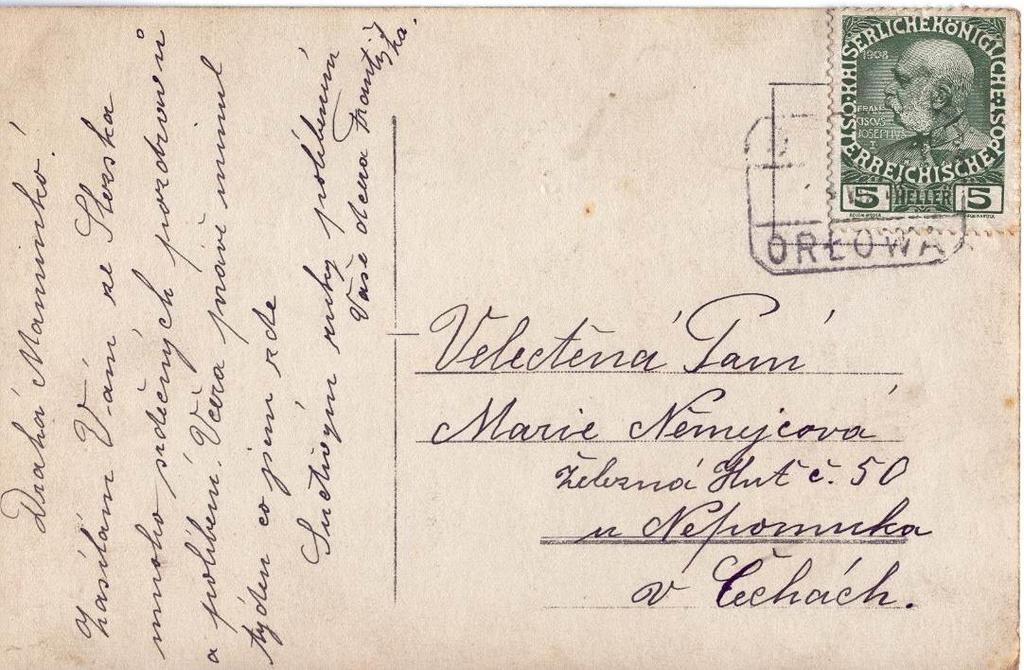 Drahá Maminko.
Zasílám Vám ze Slezska
mnoho srdečných pozdravů
a políbení. Včera právě minul
týden co jsem zde
S uctivým ruky políbením
Vaše dcera Františka.
KAISERLICHE KÖNIGLICHE
ÖSTERREICHISCHE POST
1908
FRAN
CISCVS
IOSEPHVS
I
5 HELLER 5
ORŁOWA
Velectěná Paní
Marie Němejcová
Železná Huť č. 50
u Nepomuka
v Čechách.